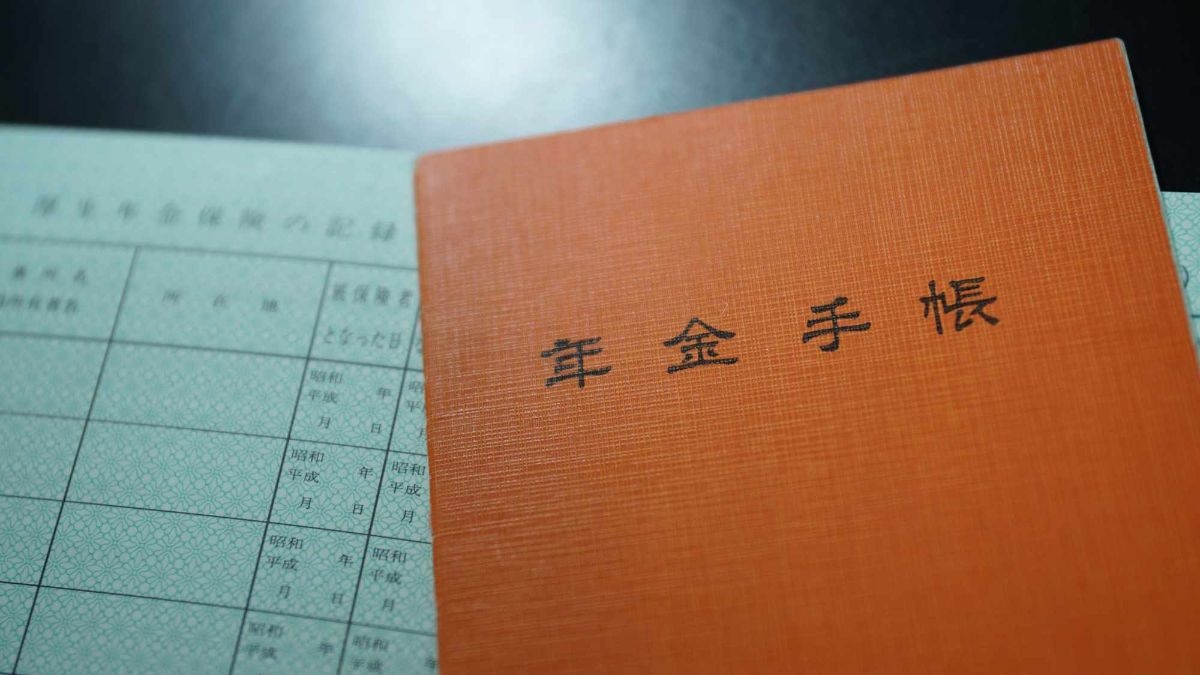 厚生年金保険の記録
所在地
被保険者
となった日
昭和
平成 年
月 日
昭和
平成 年
月 日
昭和
平成
月
昭和
平成 年
月 日
昭和
平成
月
昭和
平成 年
昭和
平成 年
年金手帳